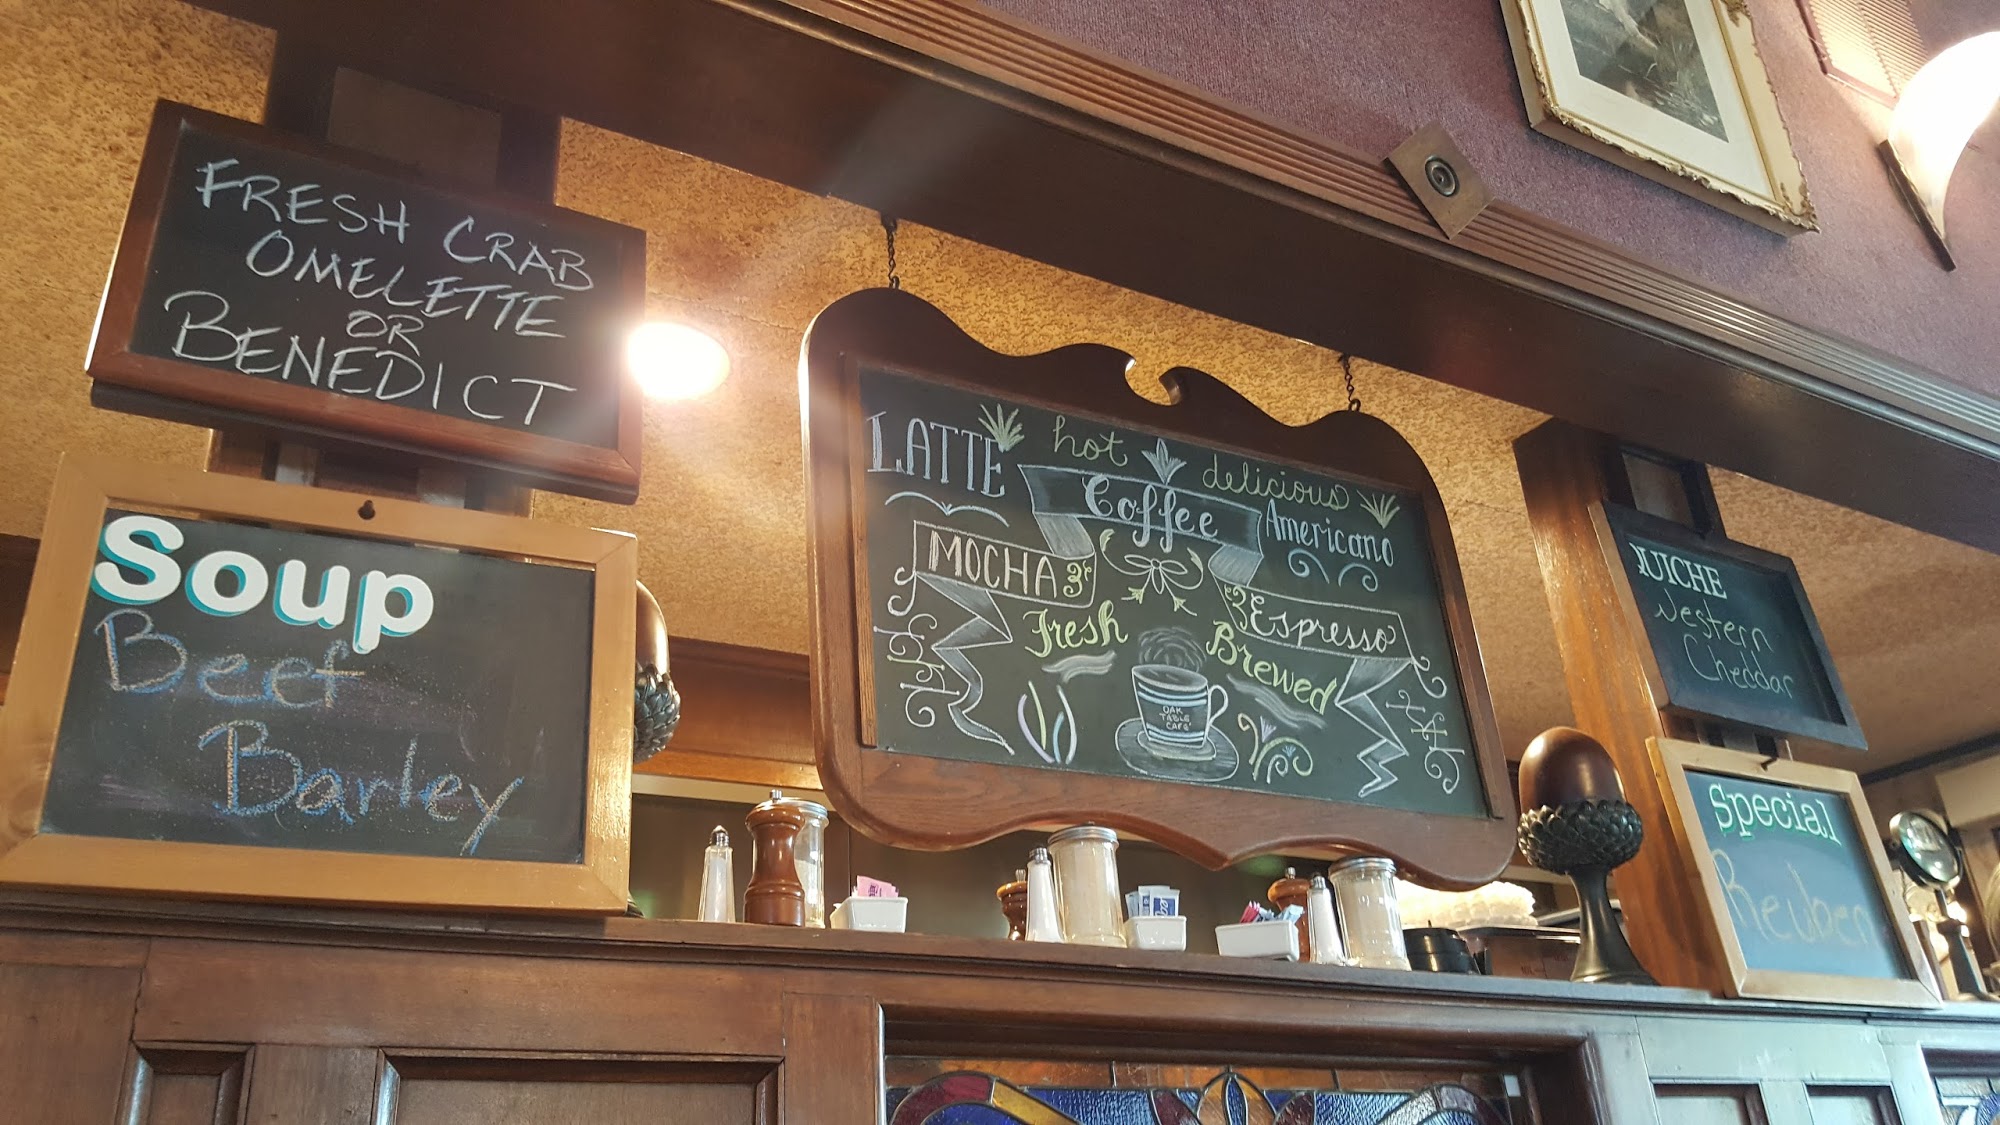 FRESH CRAB
OMELETTE
OR
BENEDICT
Soup
Beef
Barley
hot
delicious
LATTE
Coffee
Americano
MOCHA
Espresso
Fresh
Brewed
OAK
TABLE
CAFE
QUICHE
Western
Cheddar
Special
Reuben